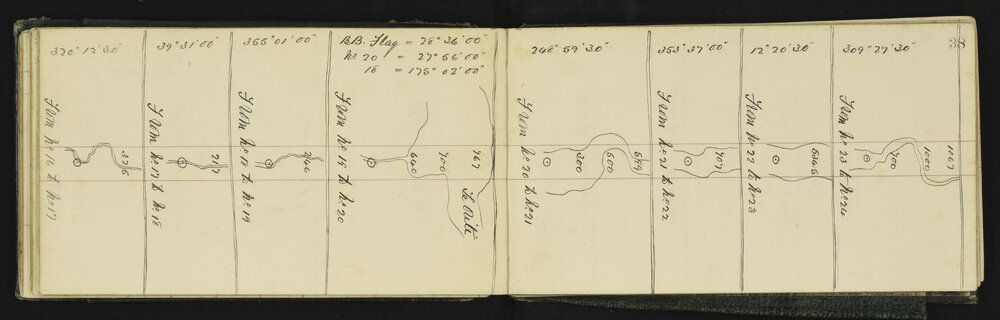 320° 12' 30"
From No 16 to No 17
325
39° 31' 00"
From No 17 to No 18
217
355° 01' 00"
From No 18 to No 19
246
B.B. Flag = 28° 36' 00"
No. 20 = 27° 56' 00"
18 = 175° 02' 00"
From No 19 to No 20
640
700
767
Te Oiti
248° 59' 30"
From No 20 to No 21
300
500
599
353° 37' 00"
From No 21 to No 22
707
12° 20' 30"
From No 22 to No 23
534.5
309° 27' 30"
From No 23 to No 24
400
1000
1067
38